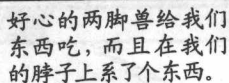 好心的两脚兽给我们
东西吃，而且在我们
的脖子上系了个东西。